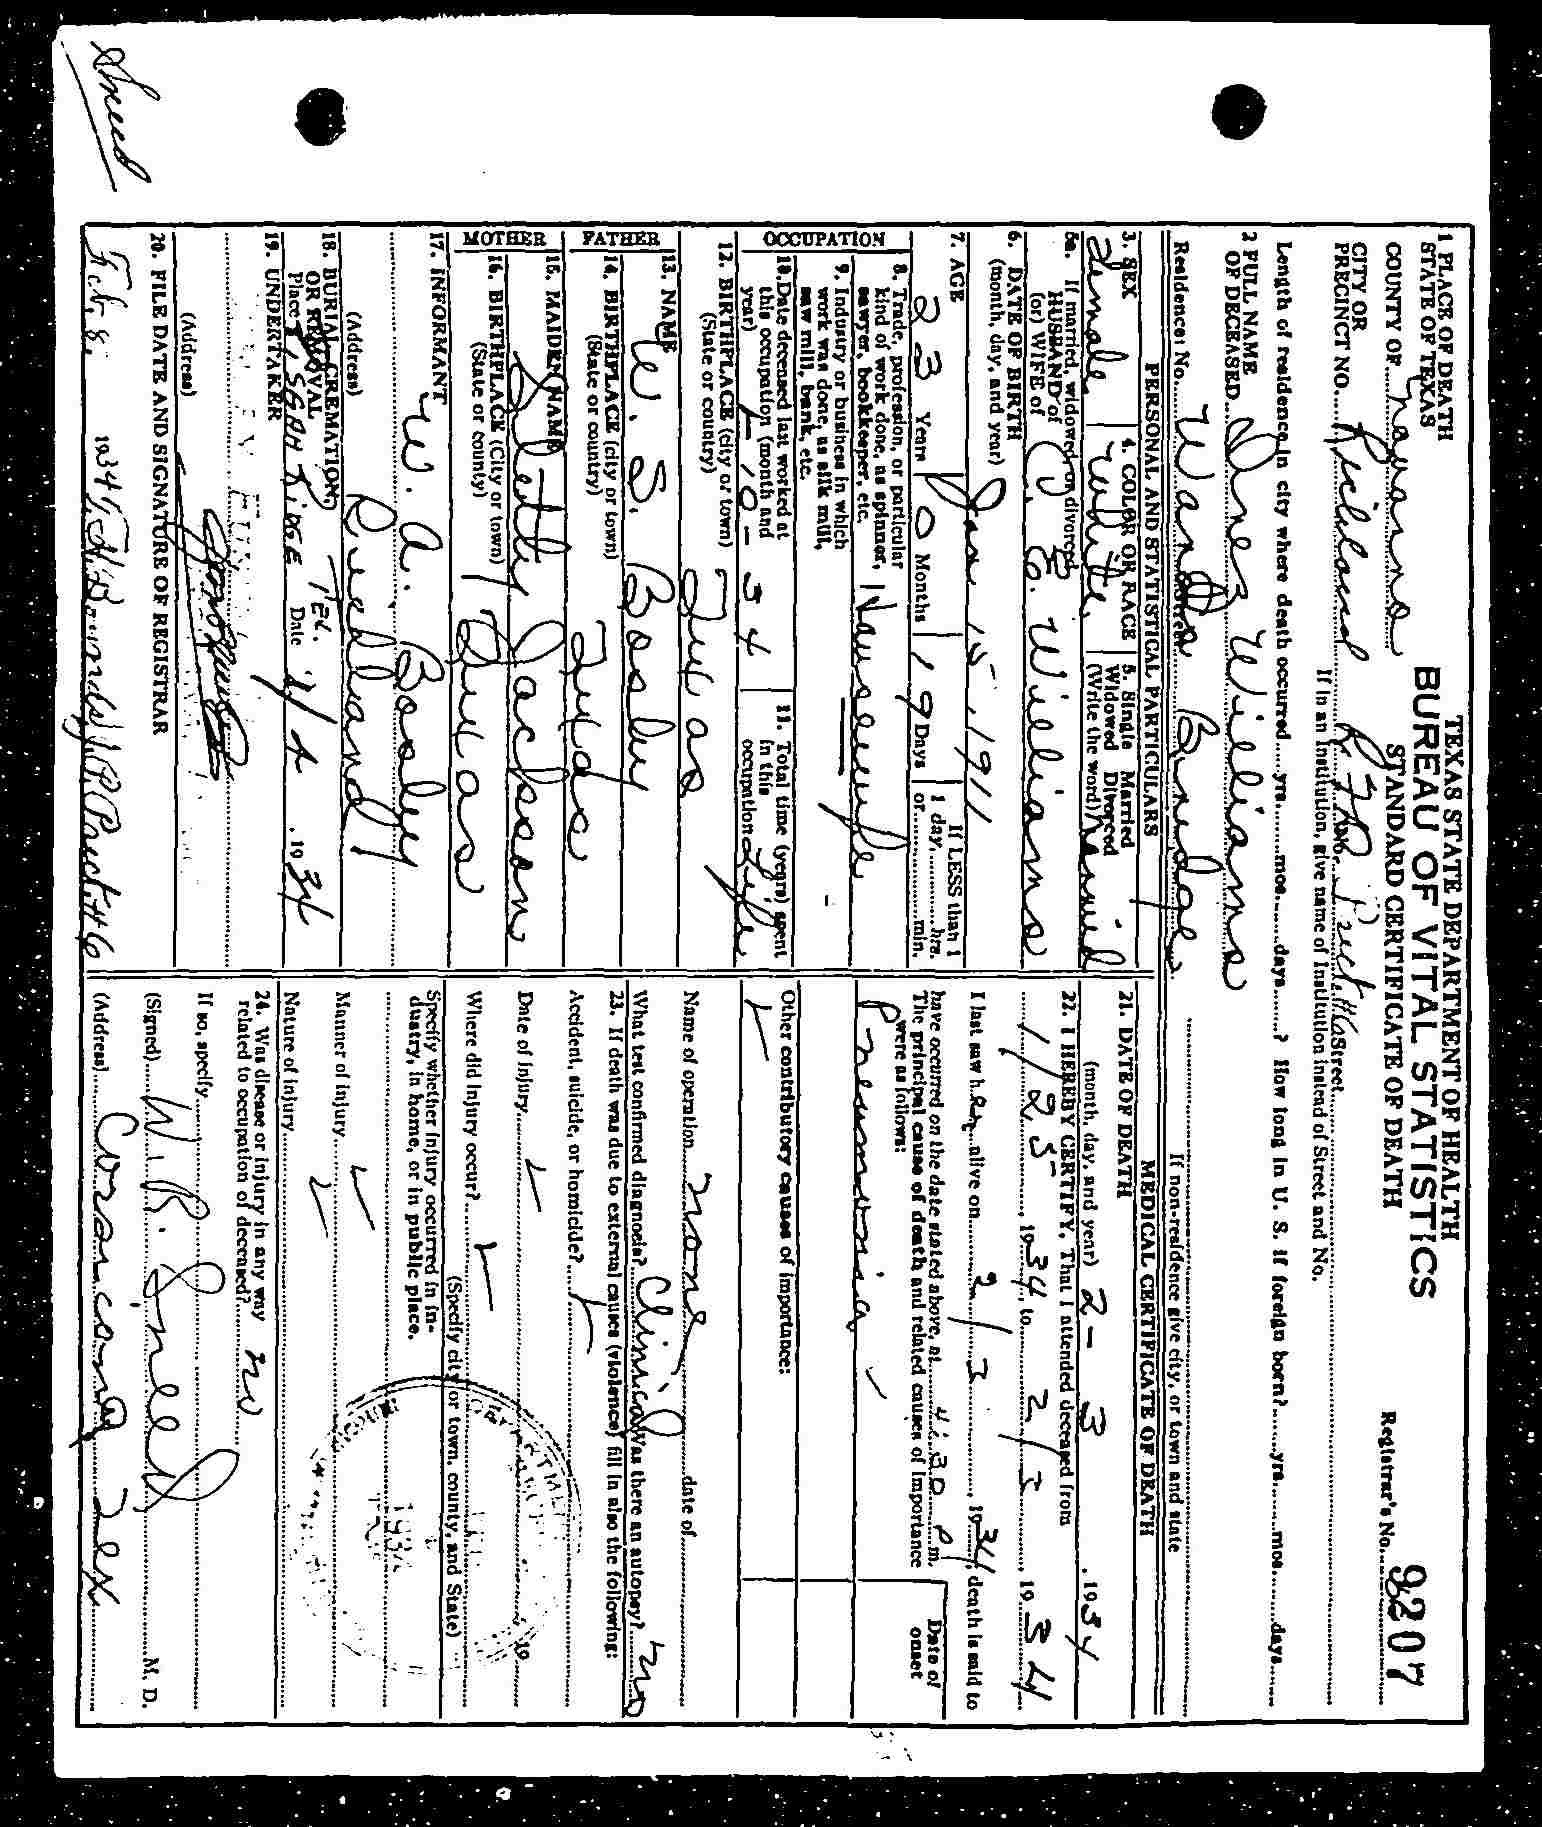 Sneed
TEXAS STATE DEPARTMENT OF HEALTH
BUREAU OF VITAL STATISTICS
STANDARD CERTIFICATE OF DEATH
Registrar's No. 9207
1 PLACE OF DEATH
STATE OF TEXAS
COUNTY OF Navarro
CITY OR
PRECINCT NO. Richland RFD No. Prect #6 Street
If in an institution, give name of institution instead of Street and No.
Length of residence in city where death occurred yrs. mos. days ? How long in U. S. if foreign born? yrs. mos. days
2 FULL NAME
OF DECEASED Inez Williams
Residence: No. Street If non-residence give city, or town and state
PERSONAL AND STATISTICAL PARTICULARS
3. SEX Female
4. COLOR OR RACE White
5. Single Married
Widowed Divorced
(Write the word) Married
5a. If married, widowed, or divorced
HUSBAND of
(or) WIFE of C. E. Williams
6. DATE OF BIRTH
(month, day, and year) Jan 15, 1911
7. AGE 23 Years 0 Months 19 Days
If LESS than 1
1 day, hrs.
or min.
OCCUPATION
8. Trade, profession, or particular
kind of work done, as spinner,
sawyer, bookkeeper, etc. Housewife
9. Industry or business in which
work was done, as silk mill,
saw mill, bank, etc.
10. Date deceased last worked at
this occupation (month and
year) 1-10-34
11. Total time (years) spent
in this
occupation Life
12. BIRTHPLACE (city or town)
(State or country) Texas
FATHER
13. NAME W. S. Bosley
14. BIRTHPLACE (city or town)
(State or country) Texas
MOTHER
15. MAIDEN NAME Jackson
16. BIRTHPLACE (City or town)
(State or county) Texas
17. INFORMANT W. A. Bosley
(Address) Richland
18. BURIAL, CREMATION,
OR REMOVAL
Place PISGAH RIDGE TEX. Date 2/4, 1934
19. UNDERTAKER
(Address)
20. FILE DATE AND SIGNATURE OF REGISTRAR
Feb. 8. 1934, J.P. Prect. #6
MEDICAL CERTIFICATE OF DEATH
21. DATE OF DEATH
(month, day, and year) 2-3, 1934
22. I HEREBY CERTIFY, That I attended deceased from
1/25, 1934 to 2/3, 1934
I last saw her alive on 2/3, 1934, death is said to
have occurred on the date stated above, at 4:30 P m.
The principal cause of death and related causes of importance
were as follows:
Date of
onset
Pneumonia
Other contributory causes of importance:
Name of operation None date of
What test confirmed diagnosis? Clinical Was there an autopsy? no
23. If death was due to external causes (violence) fill in also the following:
Accident, suicide, or homicide?
Date of injury 19
Where did injury occur?
(Specify city or town, county, and State)
Specify whether injury occurred in in-
dustry, in home, or in public place.
Manner of injury
Nature of injury
24. Was disease or injury in any way
related to occupation of deceased? no
If so, specify
(Signed) W. R. Sneed M. D.
(Address) Corsicana Tex